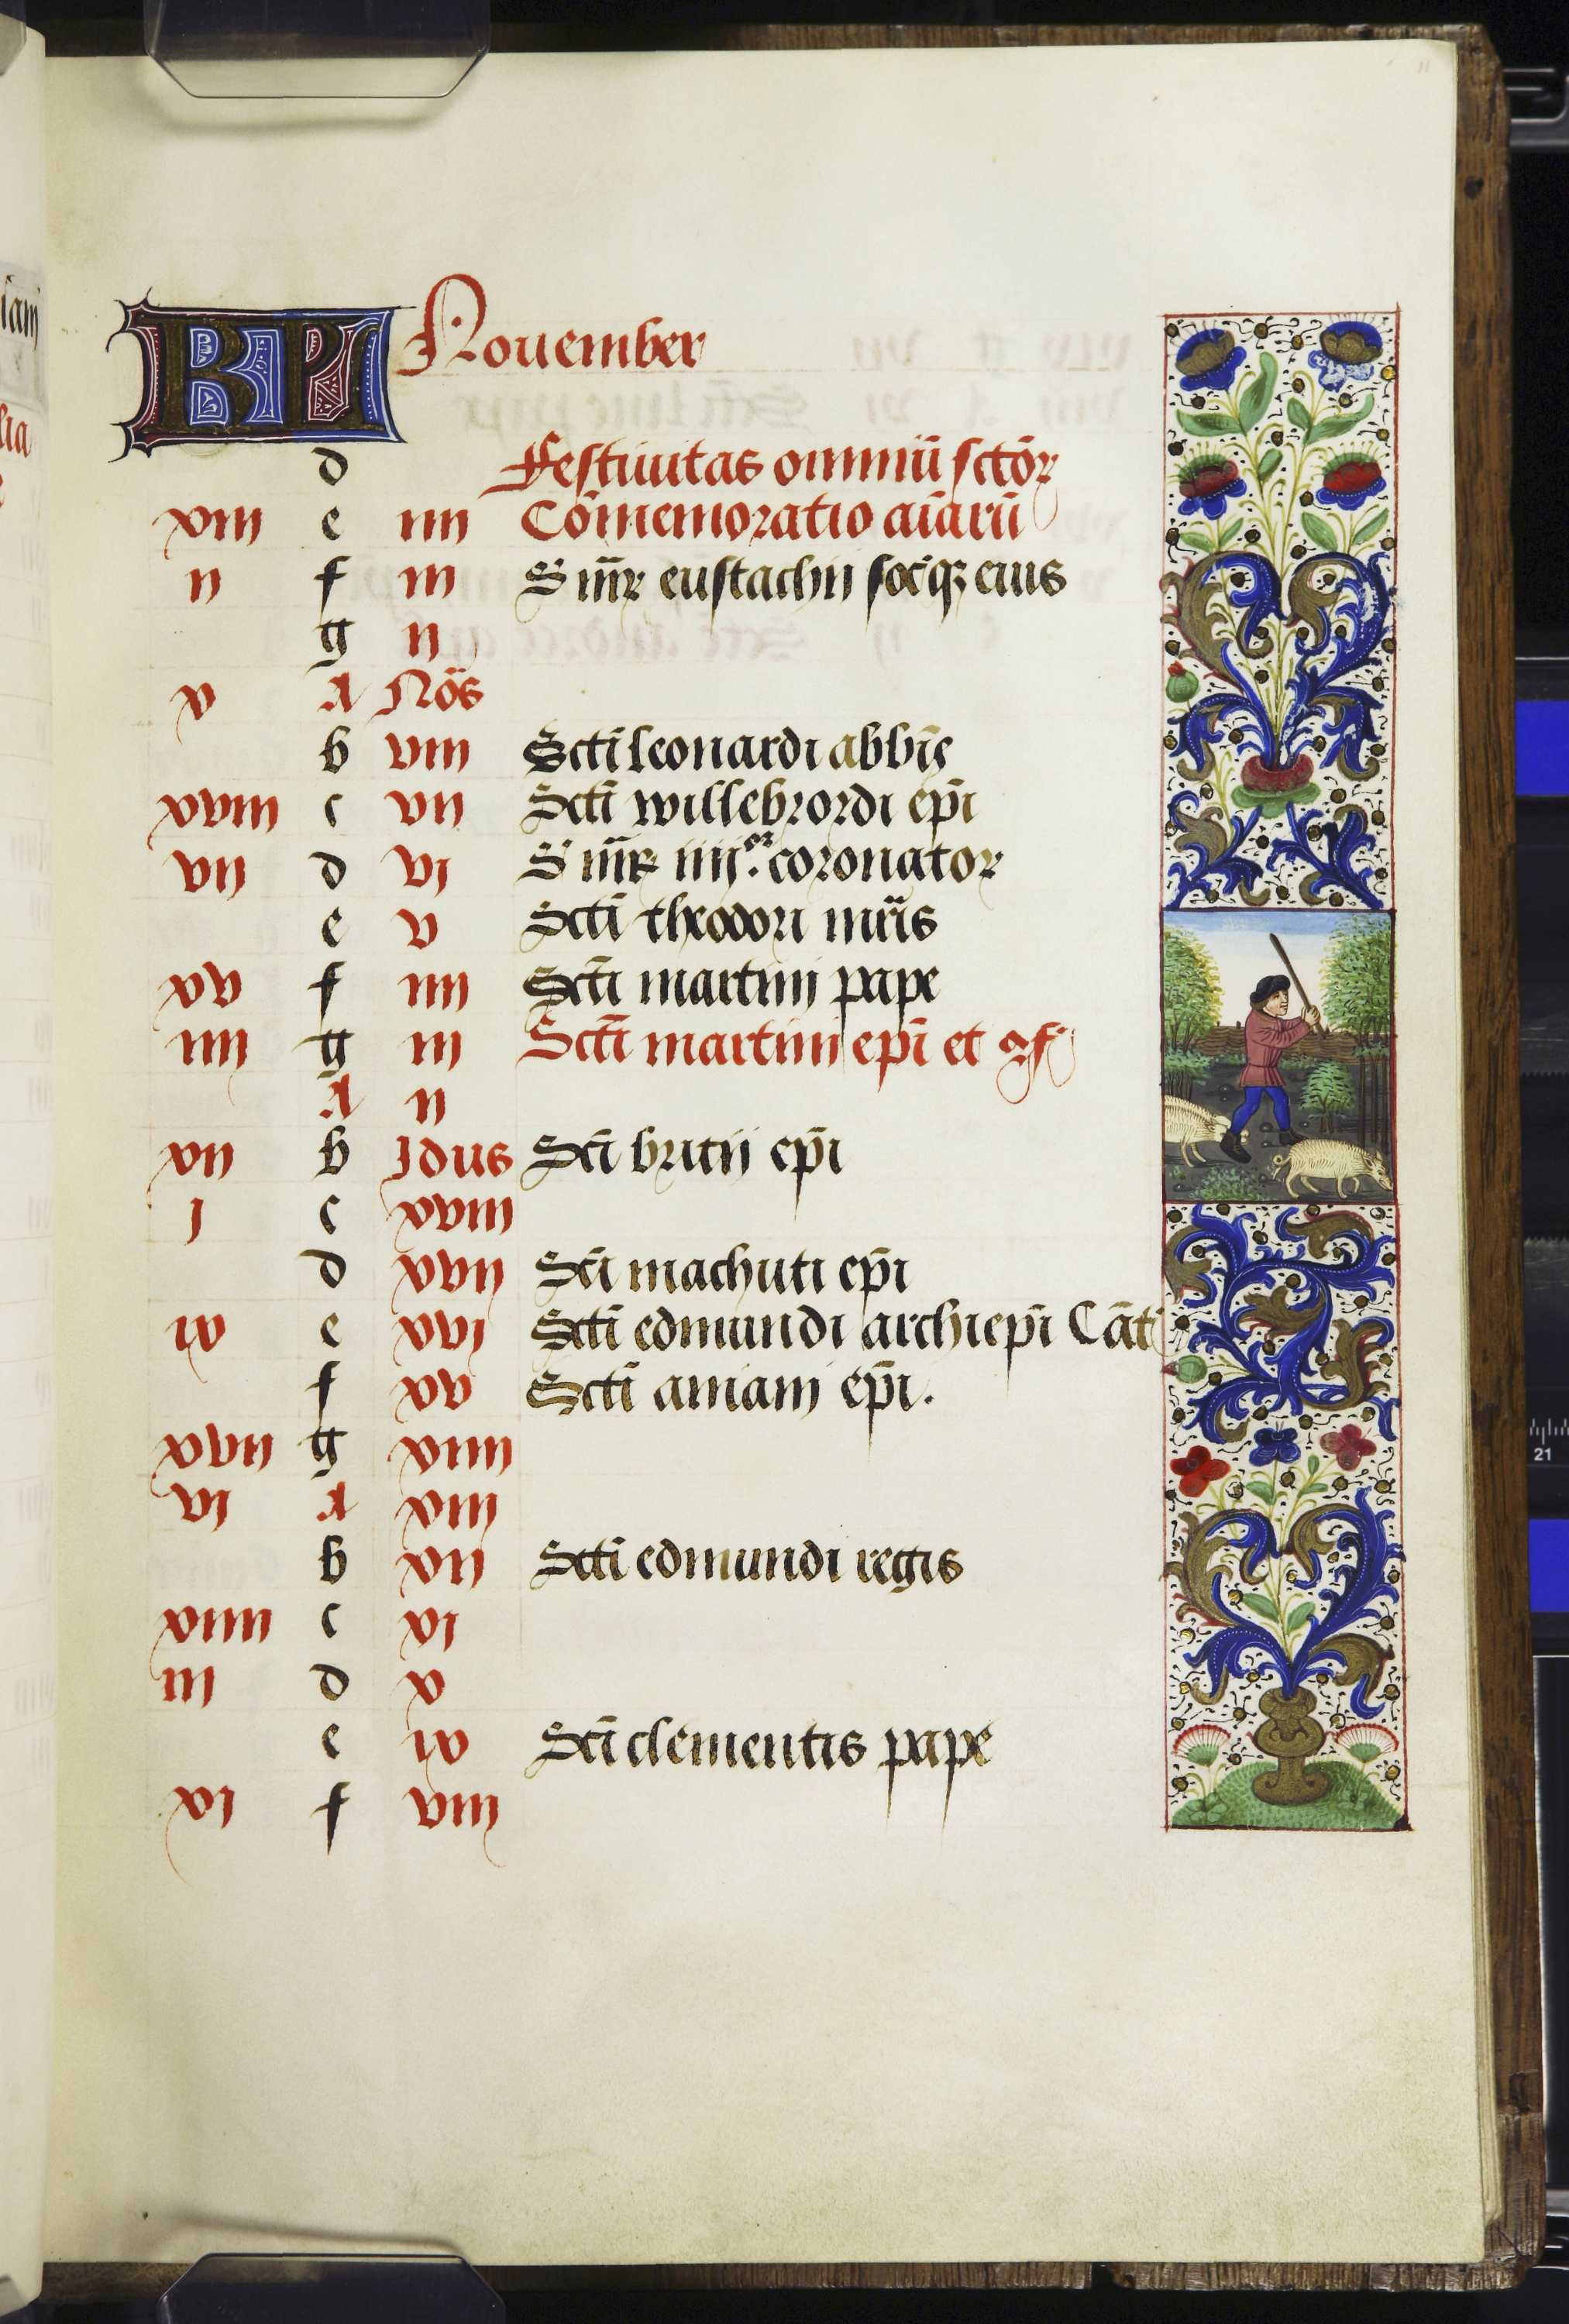 KL November
d Festiuitas omniū sctōꝝ
xiii e iiii Cōmemoratio aīarū
ii f iii S mr̄ eustachii soc̄qꝫ eius
g ii
x A Nōs
b viii Scti leonardi abb̄is
xviii c vii Scti willebrordi ep̄i
vii d vi S mr̄ iiijor. coronatoꝝ
e v Scti theodori mr̄is
xv f iiii Scti martini pape
iiii g iii Scti martini ep̄i et ꝯf
A ii
xii b Idus Sci britij ep̄i
i c xviii
d xvii Sci machuti ep̄i
ix e xvi Scti edmundi archiep̄i Cāt
f xv Scti aniani ep̄i.
xvii g xiiii
vi A xiii
b xii Scti edmundi regis
xiiii c xi
iii d x
e ix Sci clementis pape
xi f viii